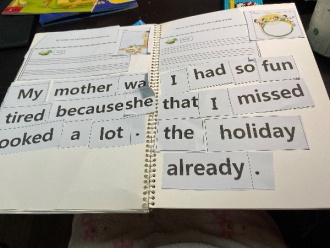 My mother wa
tired because she
ooked a lot .
I had so fun
that I missed
the holiday
already .